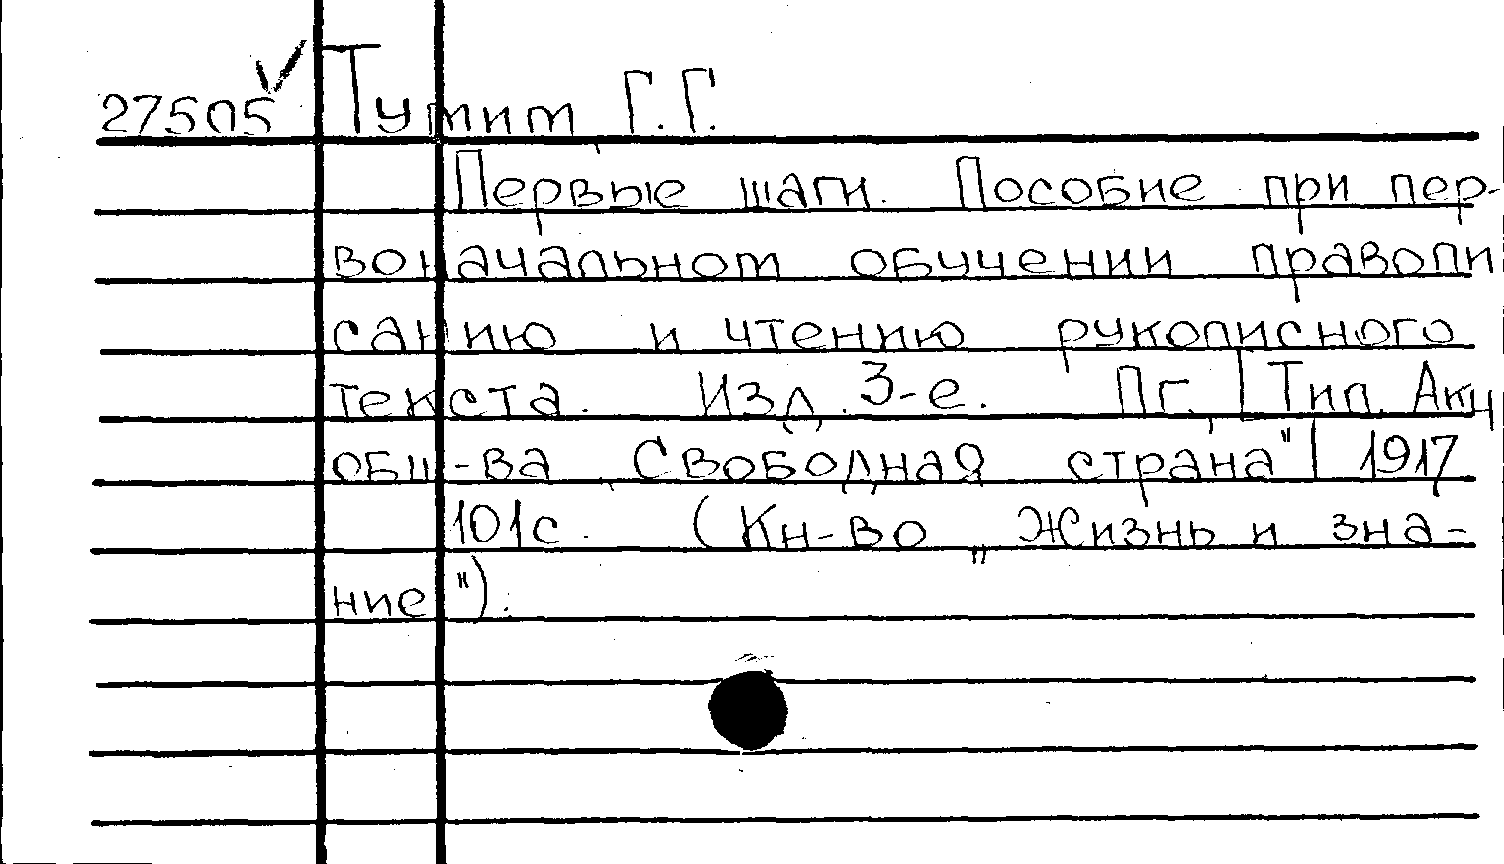 27505 Тумим Г.Г.
Первые шаги. Пособие при пер-
воначальном обучении правопи
санию и чтению рукописного
текста. Изд. 3-е. Пг., |Тип. Акц
общ-ва „Свободная страна"| 1917
101с. (Кн-во „Жизнь и зна-
ние").